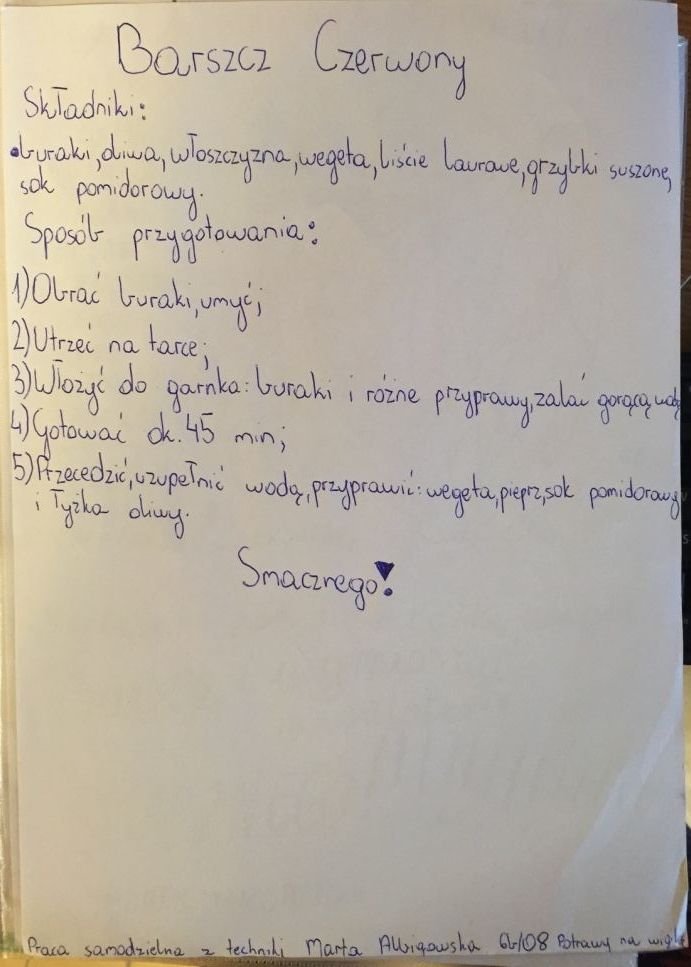 Barszcz Czerwony
Składniki:
buraki, oliwa, włoszczyzna, wegeta, liście laurowe, grzybki suszone,
sok pomidorowy.
Sposób przygotowania:
1) Obrać buraki, umyć;
2) Utrzeć na tarce;
3) Włożyć do garnka: buraki i różne przyprawy, zalać gorącą wodą
4) Gotować ok. 45 min;
5) Przecedzić, uzupełnić wodą, przyprawić: wegeta, pieprz, sok pomidorowy
i łyżka oliwy.
Smacznego!
Praca samodzielna z techniki Marta 6b/08 Potrawy na